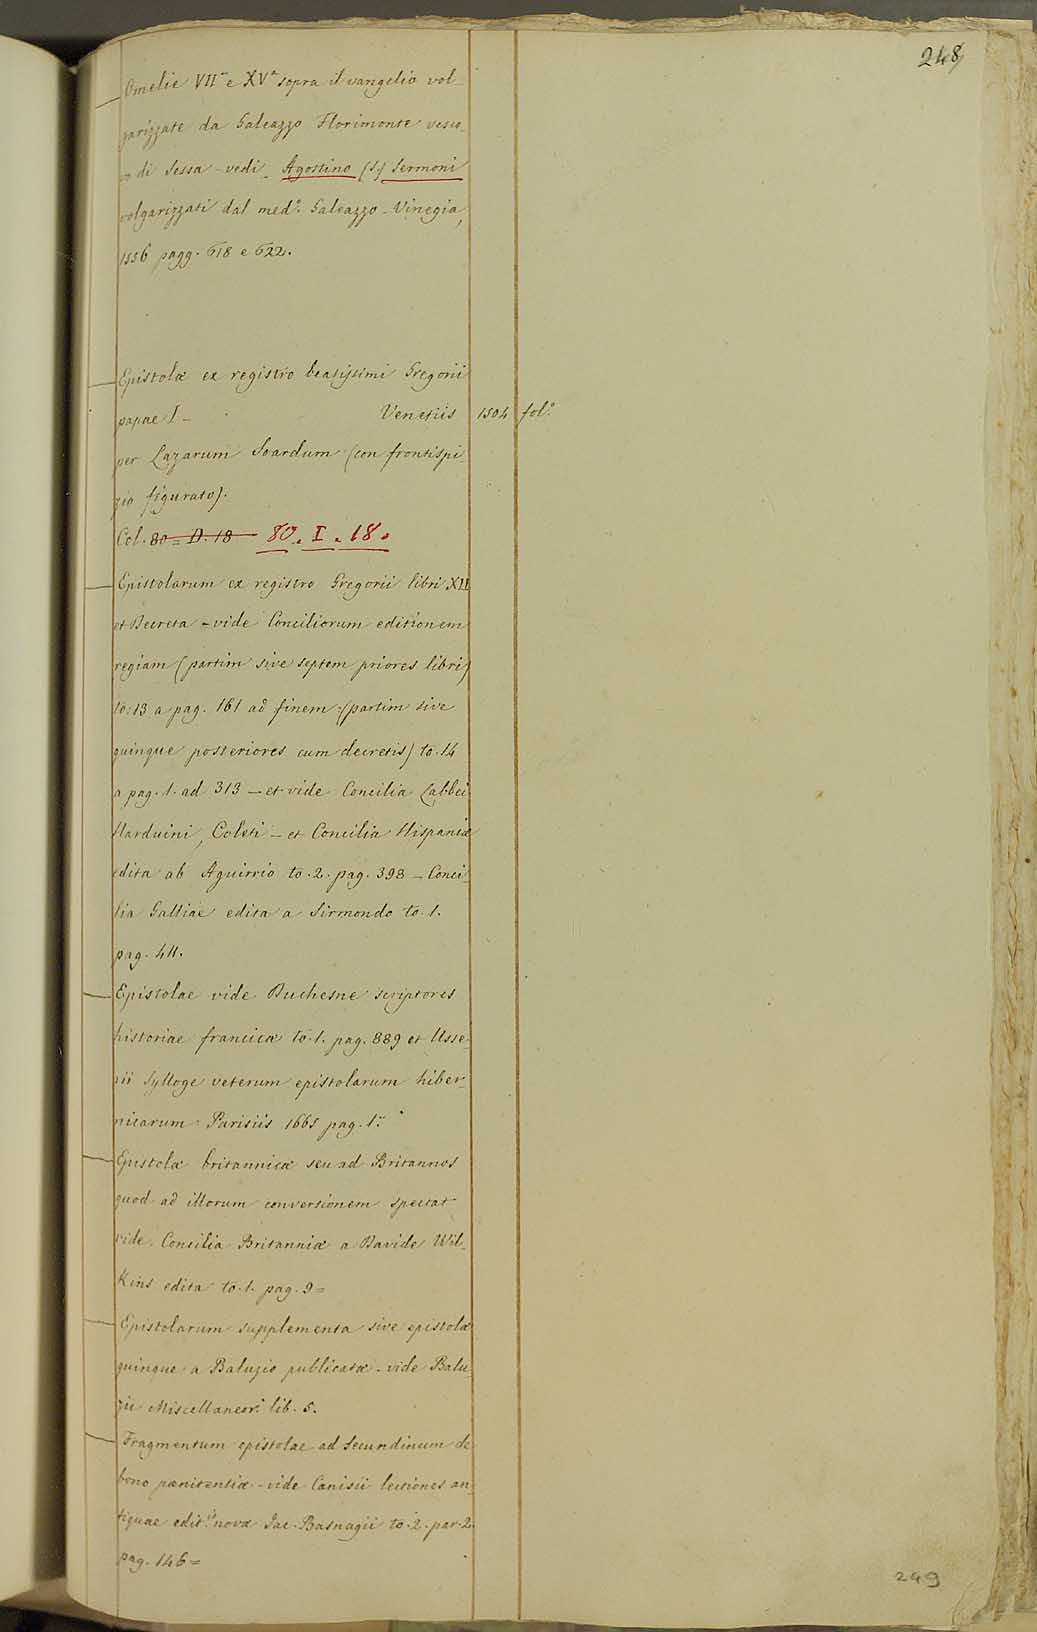 248
Omelie VIIª e XVª sopra il vangelio vol-
garizzate da Galeazzo Florimonte vesco-
vo di Sessa - vedi - Agostino (S.) Sermoni
volgarizzati dal med.º Galeazzo - Vinegia,
1556 pagg. 618 e 622.
Epistolæ ex registro beatissimi Gregorii
papae I - Venetiis 1504 fol.º
per Lazarum Soardum (con frontispi-
zio figurato).
Col. 80 = D. 18 80. I. 18.
Epistolarum ex registro Gregorii libri XII
et Decreta - vide Conciliorum editionem
regiam (partim sive septem priores libri)
to: 13 a pag. 161 ad finem: (partim sive
quinque posteriores cum decretis) to. 14
a pag. 1. ad 313 - et vide Concilia Labbei
Harduini, Coleti - et Concilia Hispaniæ
edita ab Aguirrio to. 2. pag. 398 - Conci-
lia Galliae edita a Sirmondo to. 1.
pag. 411.
Epistolae vide Duchesne scriptores
historiae francicæ to. 1. pag. 889 et Usse-
rii Sylloge veterum epistolarum hiber-
nicarum: Parisiis 1665 pag. 1.ª
Epistolæ britannicæ seu ad Britannos
quod ad illorum conversionem spectat
vide. Concilia Britanniæ a Davide Wil-
kins edita to. 1. pag. 9 =
Epistolarum supplementa sive epistolæ
quinque a Baluzio publicatæ - vide Balu-
zii Miscellaneor. lib. 5.
Fragmentum epistolae ad Secundinum de
bono pænitentiæ - vide Canisii lectiones an-
tiquae edit.is novæ Jac. Basnagii to. 2. par. 2.
pag. 146 =
249